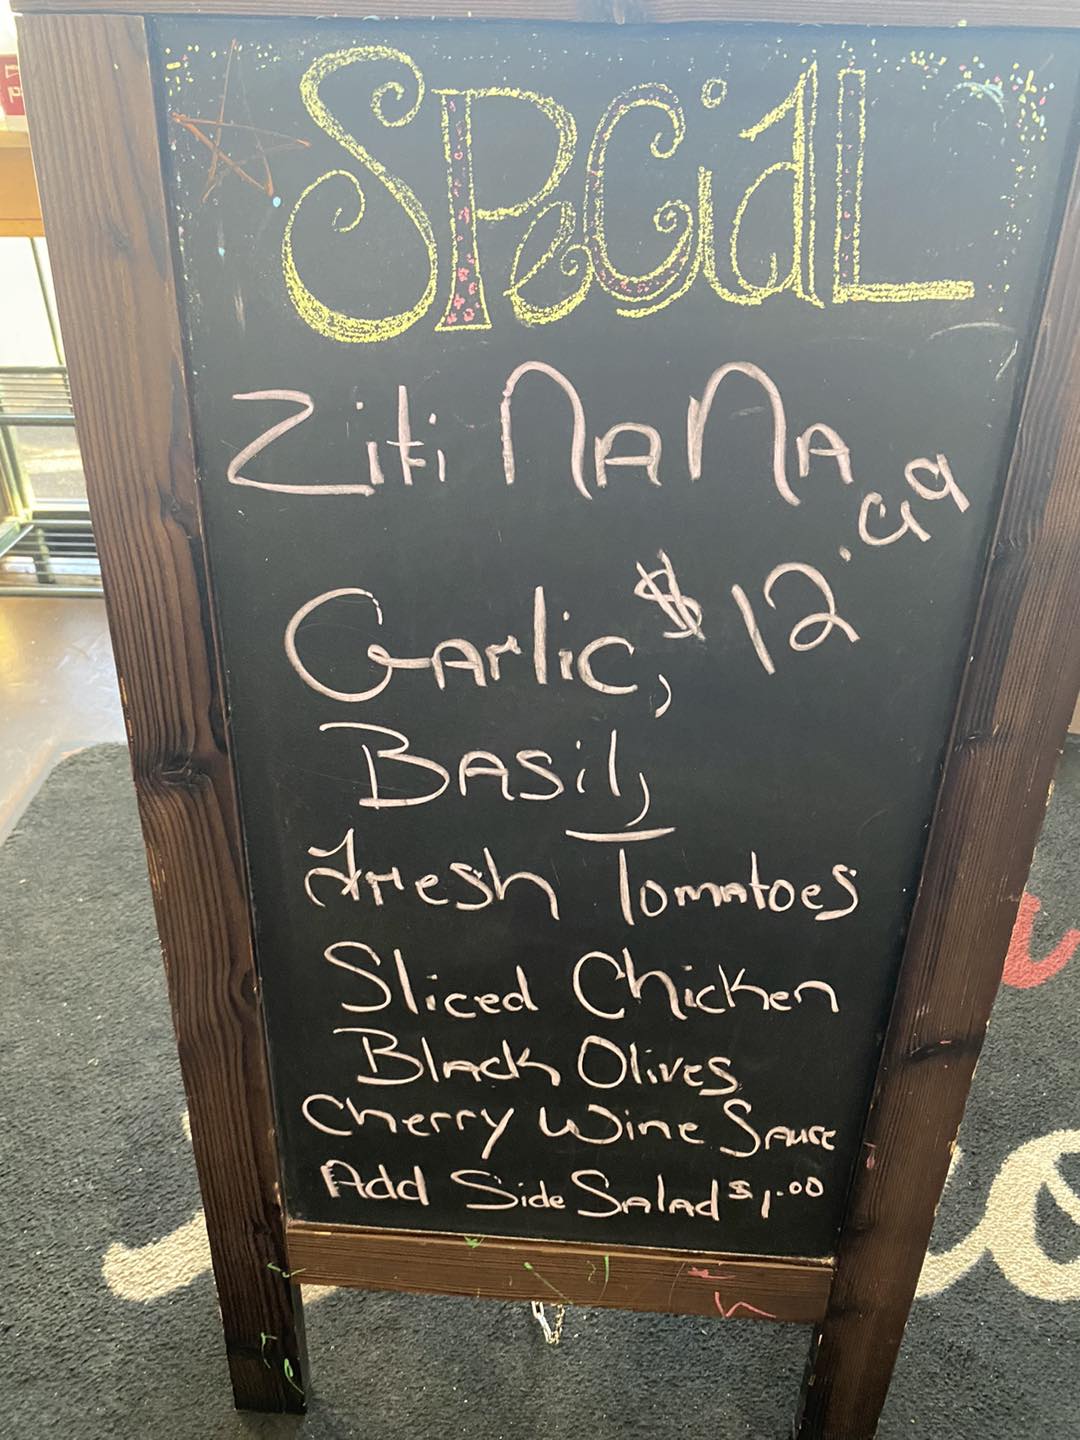 SPeCiaL
Ziti NANA
$12.99
Garlic,
BASil,
Fresh Tomatoes
Sliced Chicken
Black Olives
Cherry Wine Sauce
Add Side Salad $1.00